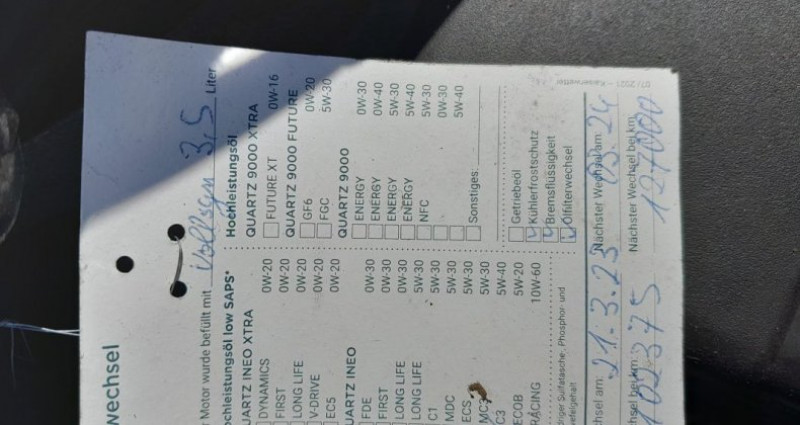 wechsel
Motor wurde befüllt mit vollsyn 3,5 Liter
ochleistungsöl low SAPS*
UARTZ INEO XTRA
DYNAMICS 0W-20
FIRST 0W-20
LONG LIFE 0W-20
V-DRIVE 0W-20
EC5 0W-20
UARTZ INEO
FDE 0W-30
FIRST 0W-30
LONG LIFE 0W-30
LONG LIFE 5W-30
C1 5W-30
MDC 5W-30
ECS 5W-30
MC3 5W-30
C3 5W-40
ECOB 5W-20
RACING 10W-60
driger Sulfatasche-, Phosphor- und
Hochleistungsöl
QUARTZ 9000 XTRA
FUTURE XT 0W-16
QUARTZ 9000 FUTURE
GF6 0W-20
FGC 5W-30
QUARTZ 9000
ENERGY 0W-30
ENERGY 0W-40
ENERGY 5W-30
ENERGY 5W-40
NFC 5W-30
0W-30
5W-40
Sonstiges:
Getriebeöl
Kühlerfrostschutz
Bremsflüssigkeit
Ölfilterwechsel
chsel am: 21.3.23 Nächster Wechsel am: 03.24
hsel bei km: 102375 Nächster Wechsel bei km: 127000
07/2021 – Kaiserwetter